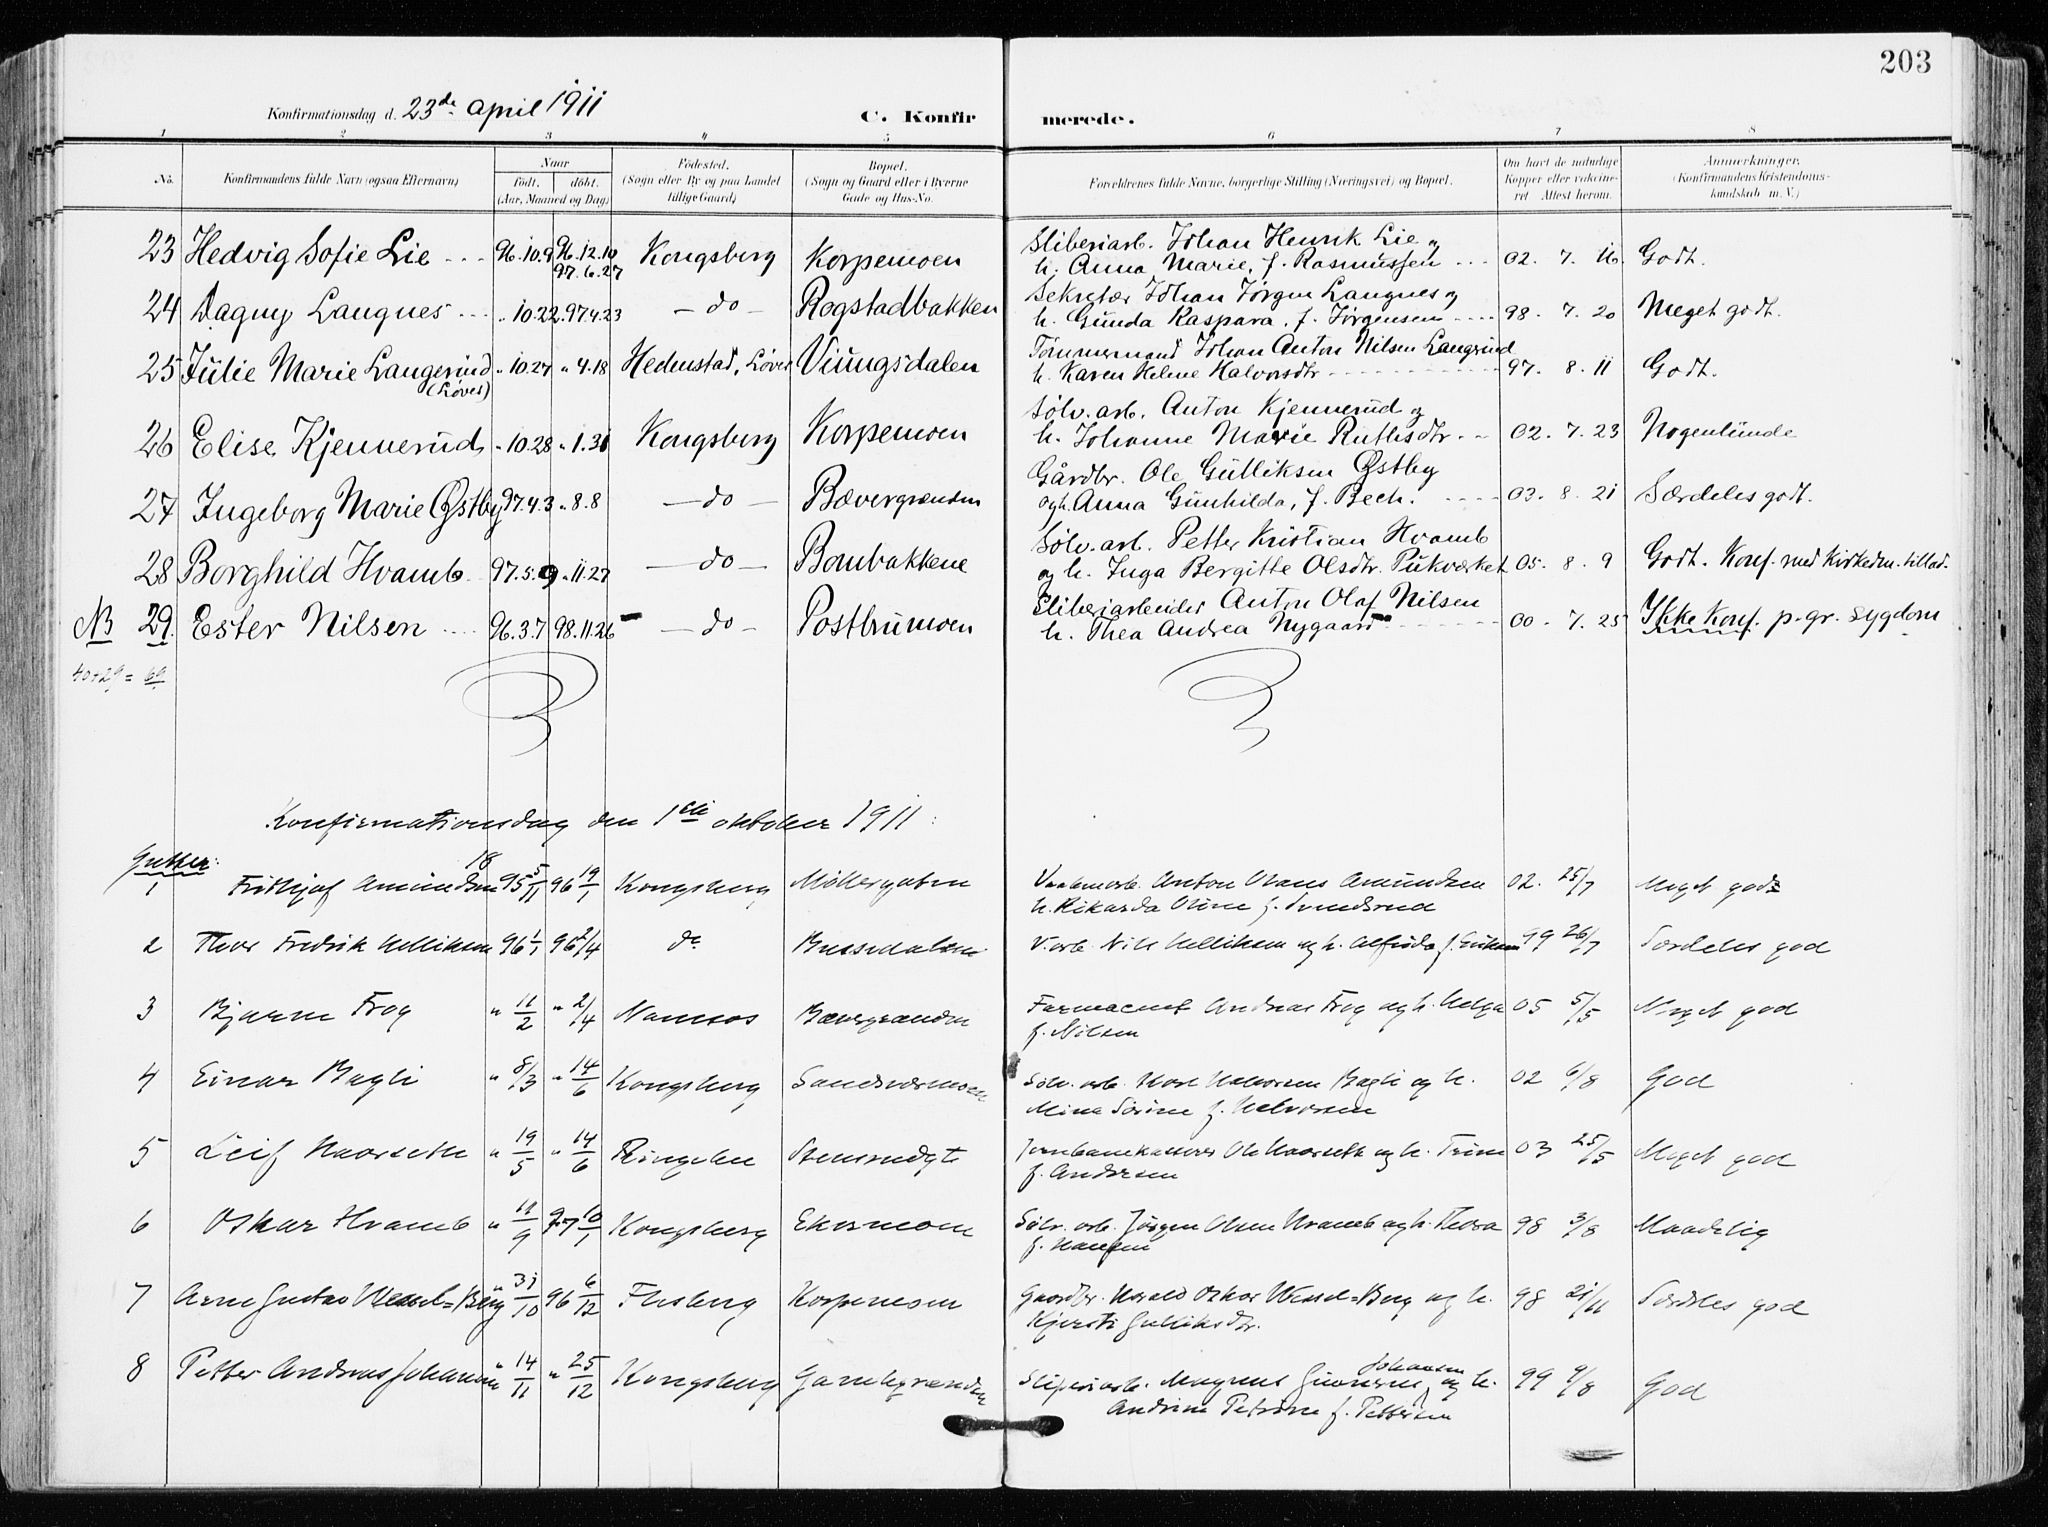 203
Konfirmationsdag d. 23de april 1911
C. Konfirmerede.
1 2 3 4 5 6 7 8
No. Konfirmandens fulde Navn (ogsaa Efternavn) Naar født. døbt. (Aar, Maaned og Dag) Fødested. (Sogn eller By og paa Landet tillige Gaard) Bopæl. (Sogn og Gaard eller i Byerne Gade og Hus-No. Forældrenes fulde Navne, borgerlige Stilling (Næringsvei) og Bopæl. Om havt de naturlige Kopper eller vaccineret Attest herom. Anmerkninger. (Konfirmandens Kristendomskundskab m. V.)
23 Hedvig Sofie Lie 96.10.9 96.12.10 97.6.27 Kongsberg Korpemoen Sliberiarb. Johan Henrik Lie og
h. Anna Marie, f. Rasmussen 02. 7. 16. Godt.
24 Dagny Langnes „ 10.22. 97.4.23 — do — Rogstadbakken Sekretær Johan Jørgen Langnes og
h. Gunda Kaspara, f. Jørgensen 98. 7. 20 Meget godt.
25 Julie Marie Langerud (Løver) „ 10.27 „ 4.18 Hedenstad, Løver Viungsdalen Tømmermand Johan Anton Nilsen Langrud
h. Karen Helene Halvorsdtr 97. 8. 11 Godt.
26 Elise Kjennerud „ 10.28 „ 1.31 Kongsberg Korpemoen Sølv. arb. Anton Kjennerud og
h. Johanne Marie Ruthsdtr. 02. 7. 23 Nogenlunde
27 Ingeborg Marie Østby 97.4.3 „ 8.8 — do — Bævergrænden Gårdbr. Ole Gulliksen Østby
og h. Anna Gunhilda, f. Bech. 03. 8. 21 Særdeles godt.
28 Borghild Hvamb 97.5.9 „ 11.27 — do — Bombakkene Sølv. arb. Petter Kristian Hvamb
og h. Inga Bergitte Olsdtr. Pukværket 05. 8. 9 Godt. Konf. med Kirkedm. tillad.
NB 29. Ester Nilsen 96.3.7 98.11.26 — do — Postbrumoen Sliberiarbeider Anton Olaf Nilsen
h. Thea Andrea Nygaard 00. 7. 25 Ikke Konf. p. gr. sygdom
40+29 = 69
Konfirmationsdag den 1ste oktober 1911:
Gutter:
1 Fridtjof Amundsen 18 95 5/11 96 19/1 Kongsberg Møllergaten Anton Amundsen
h. Rikarda Oline f. 02. 25/7 Meget god
2 Thor Fredrik Gulliksen 96 1/1 96 2/4 do V.arb. Nils Gulliksen og h. 99 26/7 Særdeles god
3 Bjarne Frog „ 11/2 „ 2/4 Namsos Bævergrænden Farmaceut Andreas Frog og h. Helga
f. Nilsen 05 5/5 Meget god
4 Einar Bagli „ 8/3 „ 14/6 Kongsberg Sandsværmoen Sølv. arb. Halvorsen Bagli og h.
Mina Sørine f. Halvorsen 02 6/8 God
5 Leif Haarseth „ 19/5 „ 14/6 Ringebu Jernbanekasserer Ole Haarseth og h. Trine
f. Andersen 03 25/5 Meget god
6 Oskar Hvamb „ 11/9 97 10/1 Kongsberg Ekermoen Sølv. arb. Jørgen Olsen Hvamb og h. Thora
f. Hansen 98 3/8 Maadelig
7 Arne Gustav Wessel=Berg „ 31/10 96 6/12 Flesberg Korpemoen Gaardbr. Harald Oskar Wessel=Berg og h.
Kjersti Gulliksdtr. 98 21/11 Særdeles god
8 Petter Andreas Johansen „ 14/11 „ 25/12 Kongsberg Gamlegrænden Sliperiarb. Magnus Johansen og h.
Andrine Petrine f. Pettersen 99 9/8 God